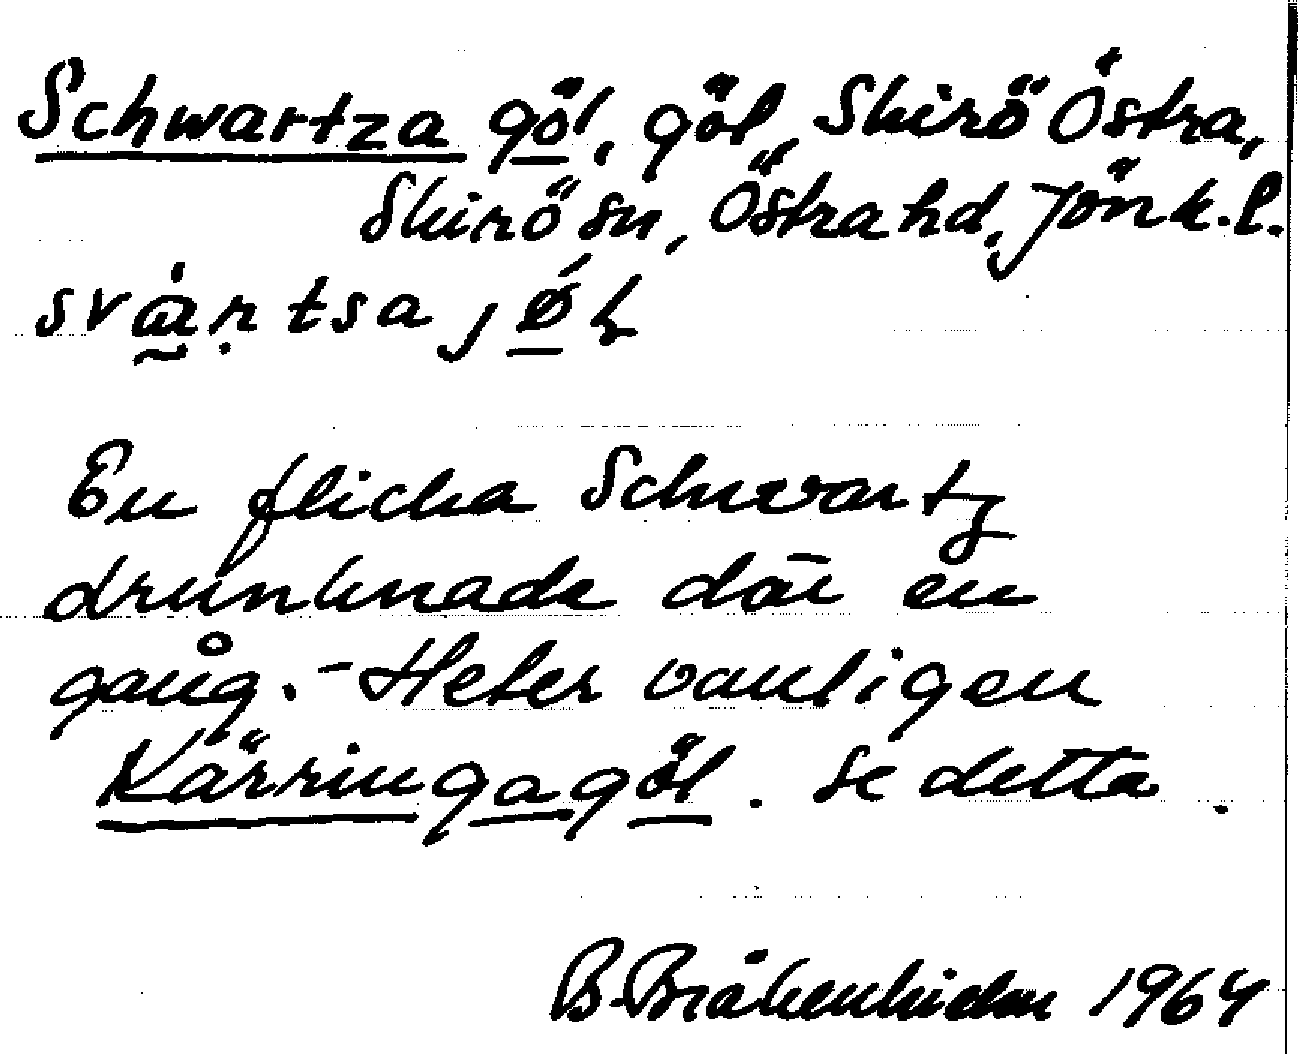 Schwartza göl, göl, Skirö Östra,
Skirö sn, Östra hd, Jönk. l.
En flicka Schwartz
drunknade där en
gång. - Heter vanligen
Kärringagöl. Se detta.
B. Bråkenhielm 1964